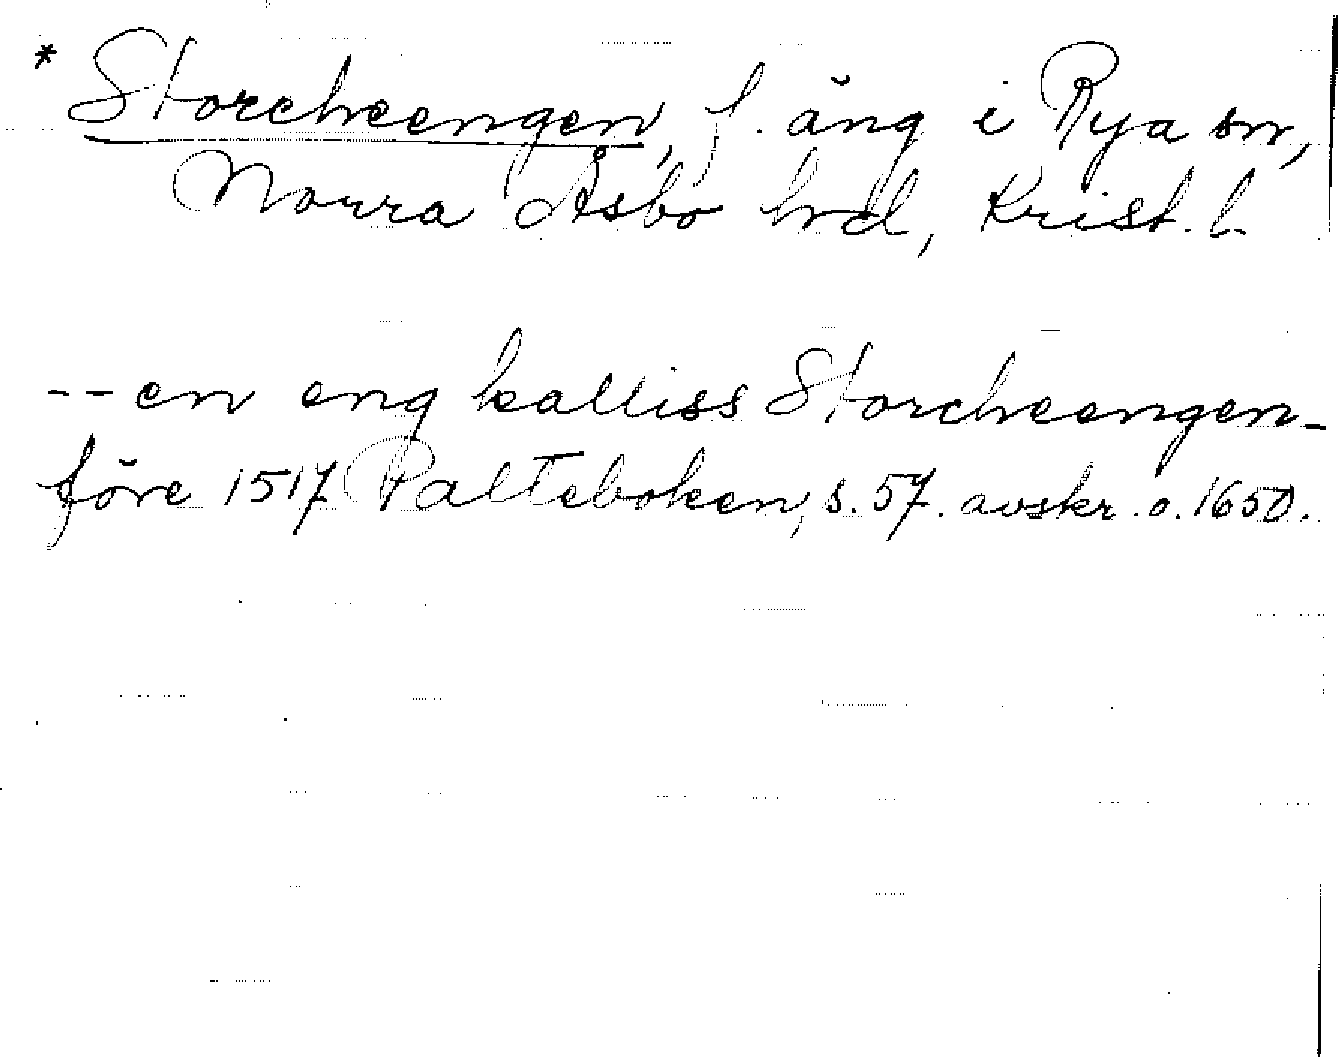 * Storcheengen, f. äng i Rya sn,
Norra Åsbo hrd, Krist. l.
-- en eng kalliss Storcheengen -
före 1517 Palteboken, s. 57. avskr. o. 1650.